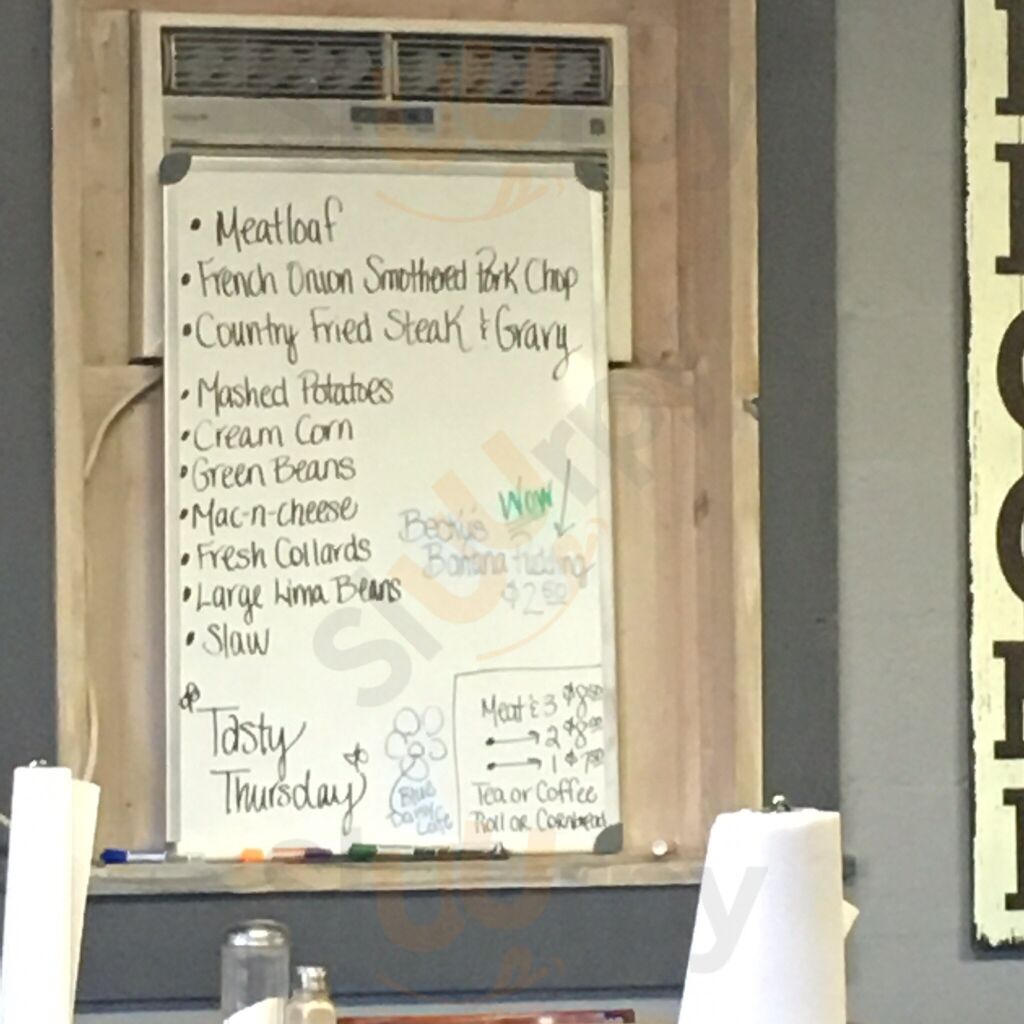 • Meatloaf
• French Onion Smothered Pork Chop
• Country Fried Steak & Gravy
• Mashed Potatoes
• Cream Corn
• Green Beans
• Mac-n-cheese
• Fresh Collards
• Large Lima Beans
• Slaw
Wow
Becky's
Banana Pudding
$2.50
Tasty
Thursday
Blue
Daisy
Cafe
Meat & 3
2
1
Tea or Coffee
Roll or Cornbread
Slurrpy